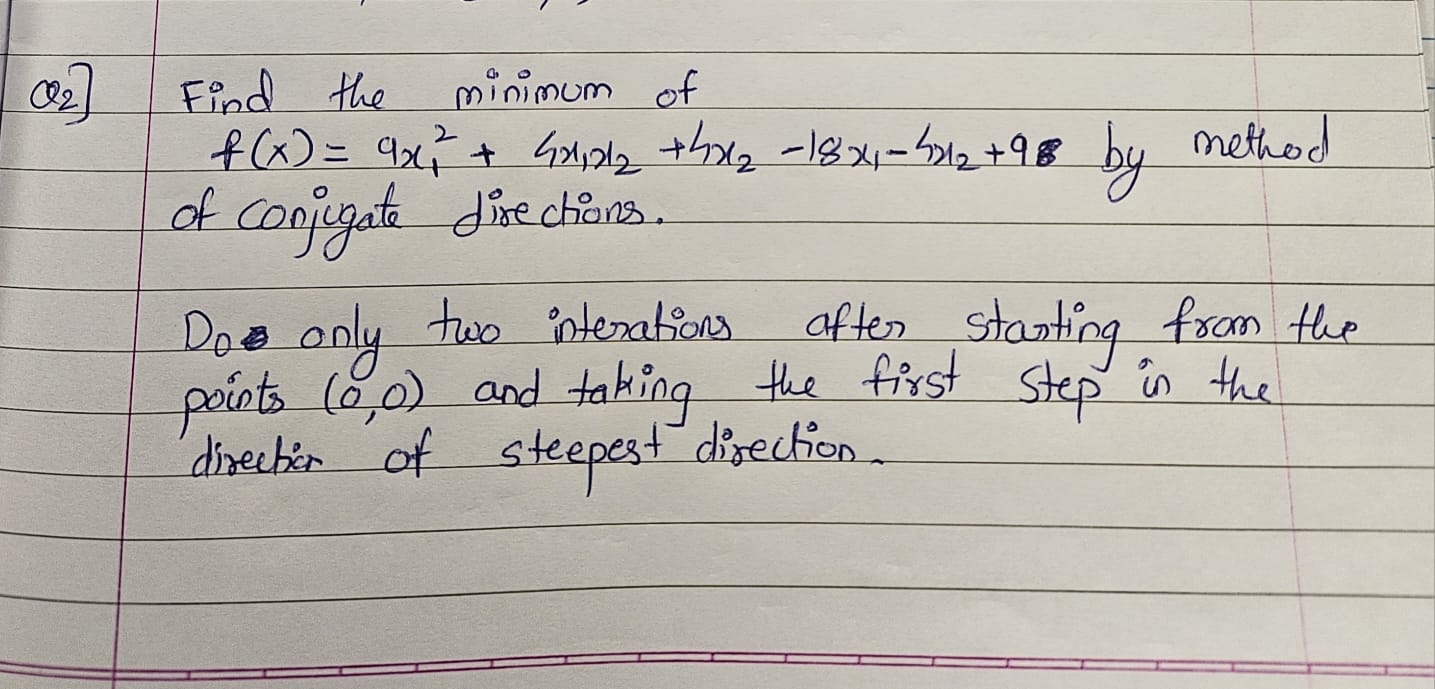 Q2] Find the minimum of
f(x) = 9x₁² + 4x₁x₂ + 4x₂ - 18x₁ - 4x₂ + 98 by method
of conjugate directions.
Do only two interations after starting from the
points (0,0) and taking the first step in the
direction of steepest direction.